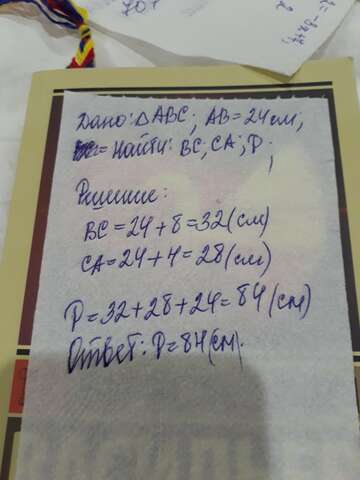 Дано: △ABC; AB=24см;
Найти: BC; CA; P;
Решение:
BC=24+8=32(см)
CA=24+4=28(см)
P=32+28+24=84(см)
Ответ: P=84(см).